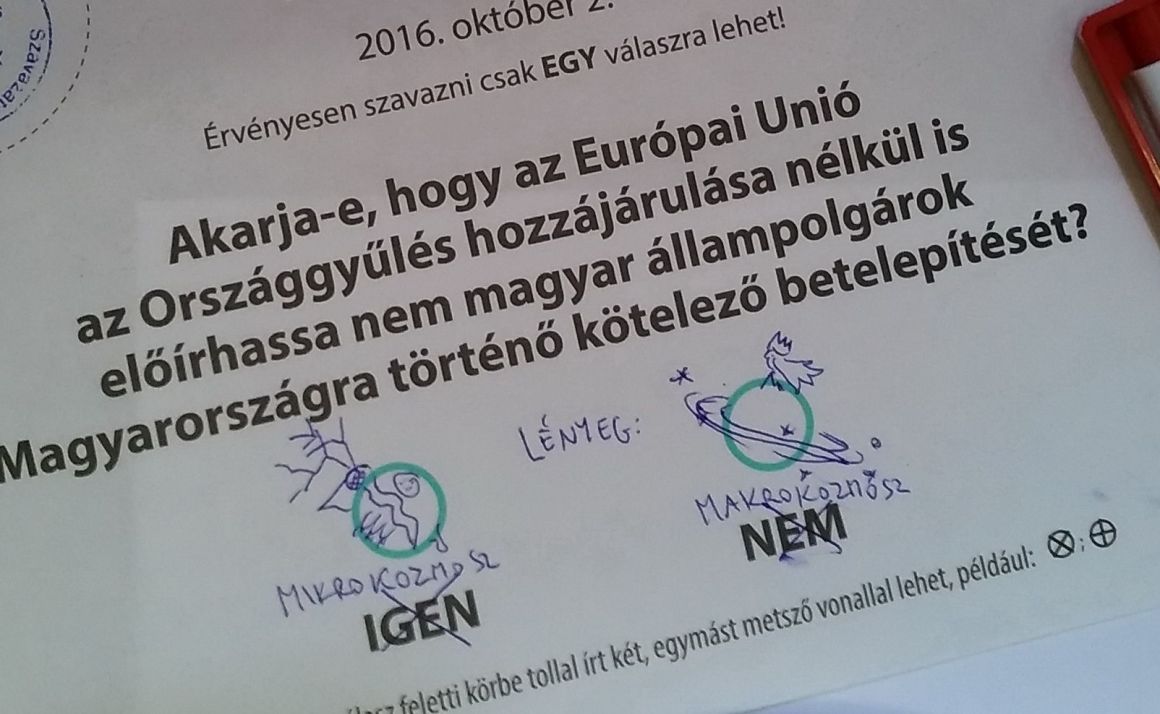 Szavazat
2016. október 2.
Érvényesen szavazni csak EGY válaszra lehet!
Akarja-e, hogy az Európai Unió
az Országgyűlés hozzájárulása nélkül is
előírhassa nem magyar állampolgárok
Magyarországra történő kötelező betelepítését?
LÉNYEG:
MIKROKOZMOSZ
IGEN
MAKROKOZMOSZ
NEM
feletti körbe tollal írt két, egymást metsző vonallal lehet, például: ⊗; ⊕